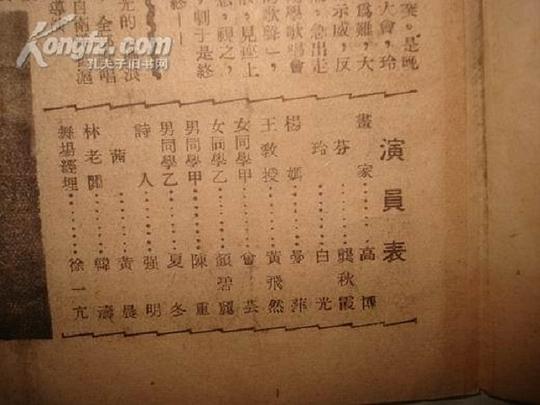 棄，是晚
大會，玲
爲難，大
示威，反
急出走
學歌唱會
的歌聲一，
，見座上
視之，
劇于是終
終——
演員表
畫家……高博
芬……龔秋霞
玲……白光
楊媽……曼萍
王教授……黃飛然
女同學甲……曾芸
女同學乙……顧碧麗
男同學甲……陳重
男同學乙……夏冬
詩人……强明
茜……黃晨
林老闆……韓濤
舞場經理……徐一亢
Kongfz.com
孔夫子旧书网